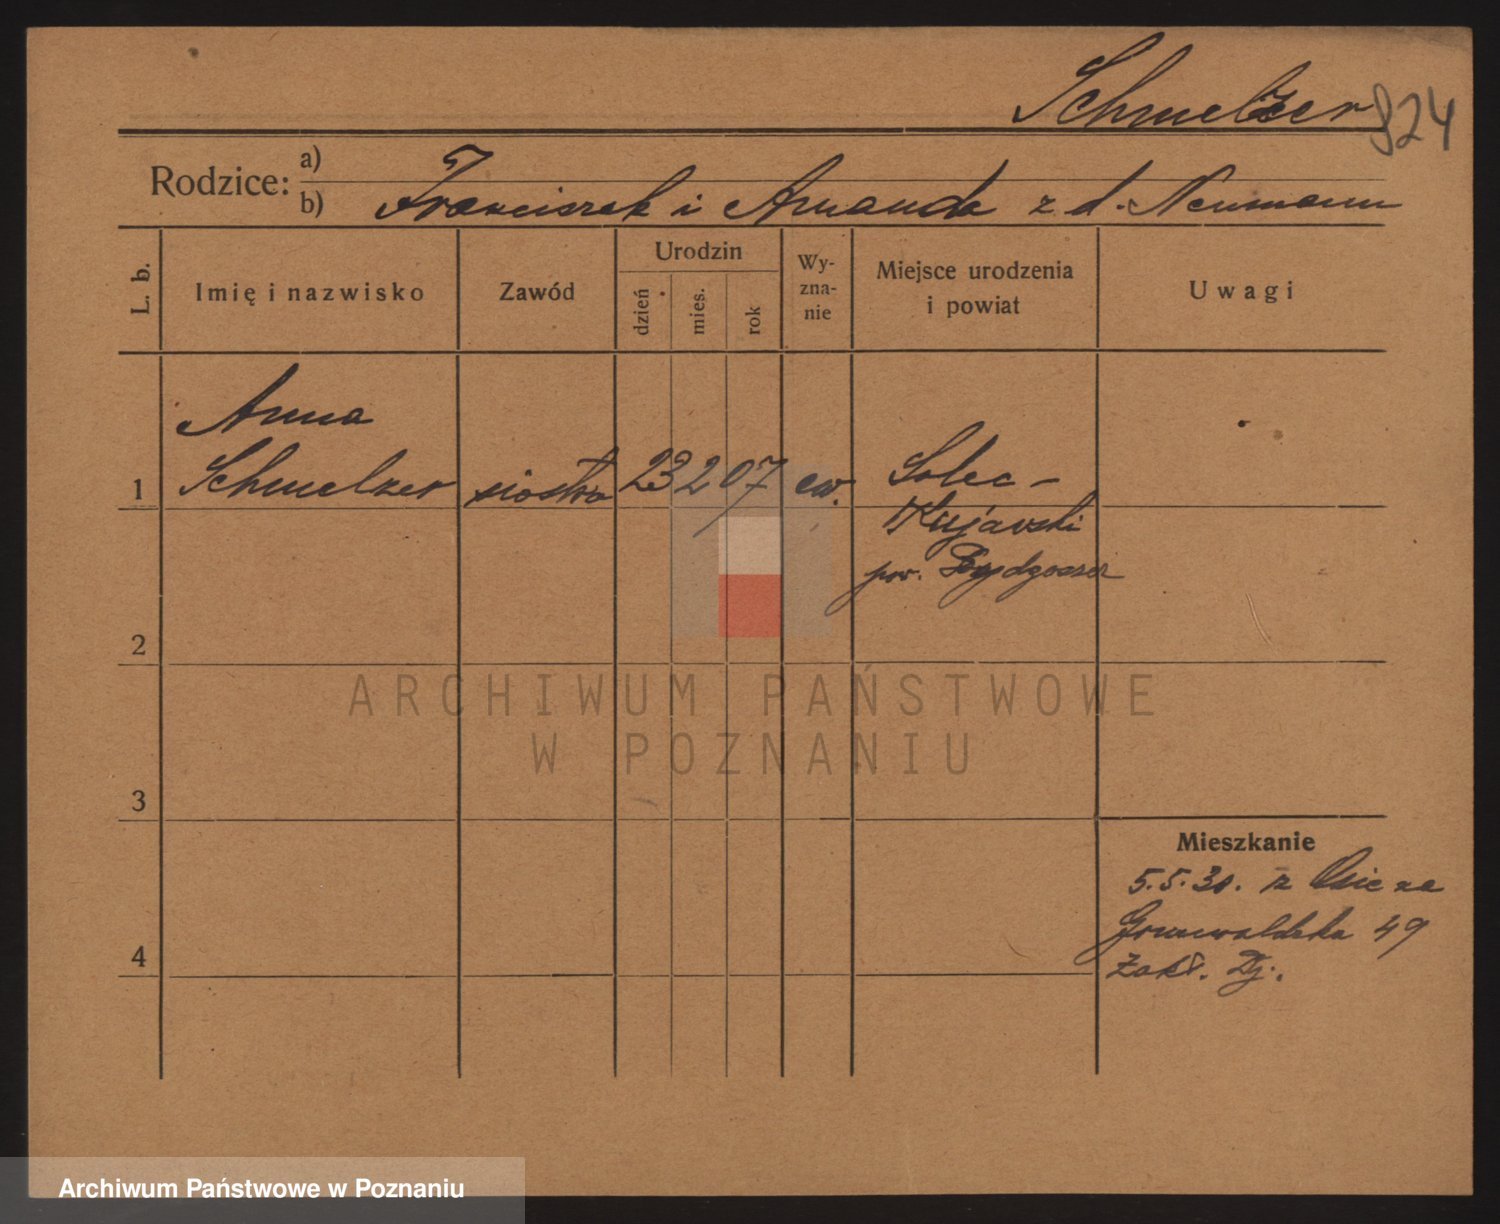 Schmelzer
824
Rodzice:
a)
b) Franciszek i Amanda z d. Neumann
L. b.
Imię i nazwisko
Zawód
Urodzin
dzień
mies.
rok
Wy-
zna-
nie
Miejsce urodzenia
i powiat
Uwagi
Anna
1 Schmelzer siostra 23 2 07 ew. Solec –
Kujavski
pow. Bydgoszcz
2
3
4
Mieszkanie
5.5.30. z
Grunwaldzka 49
Zakł. Dj.
ARCHIWUM PAŃSTWOWE
W POZNANIU
Archiwum Państwowe w Poznaniu